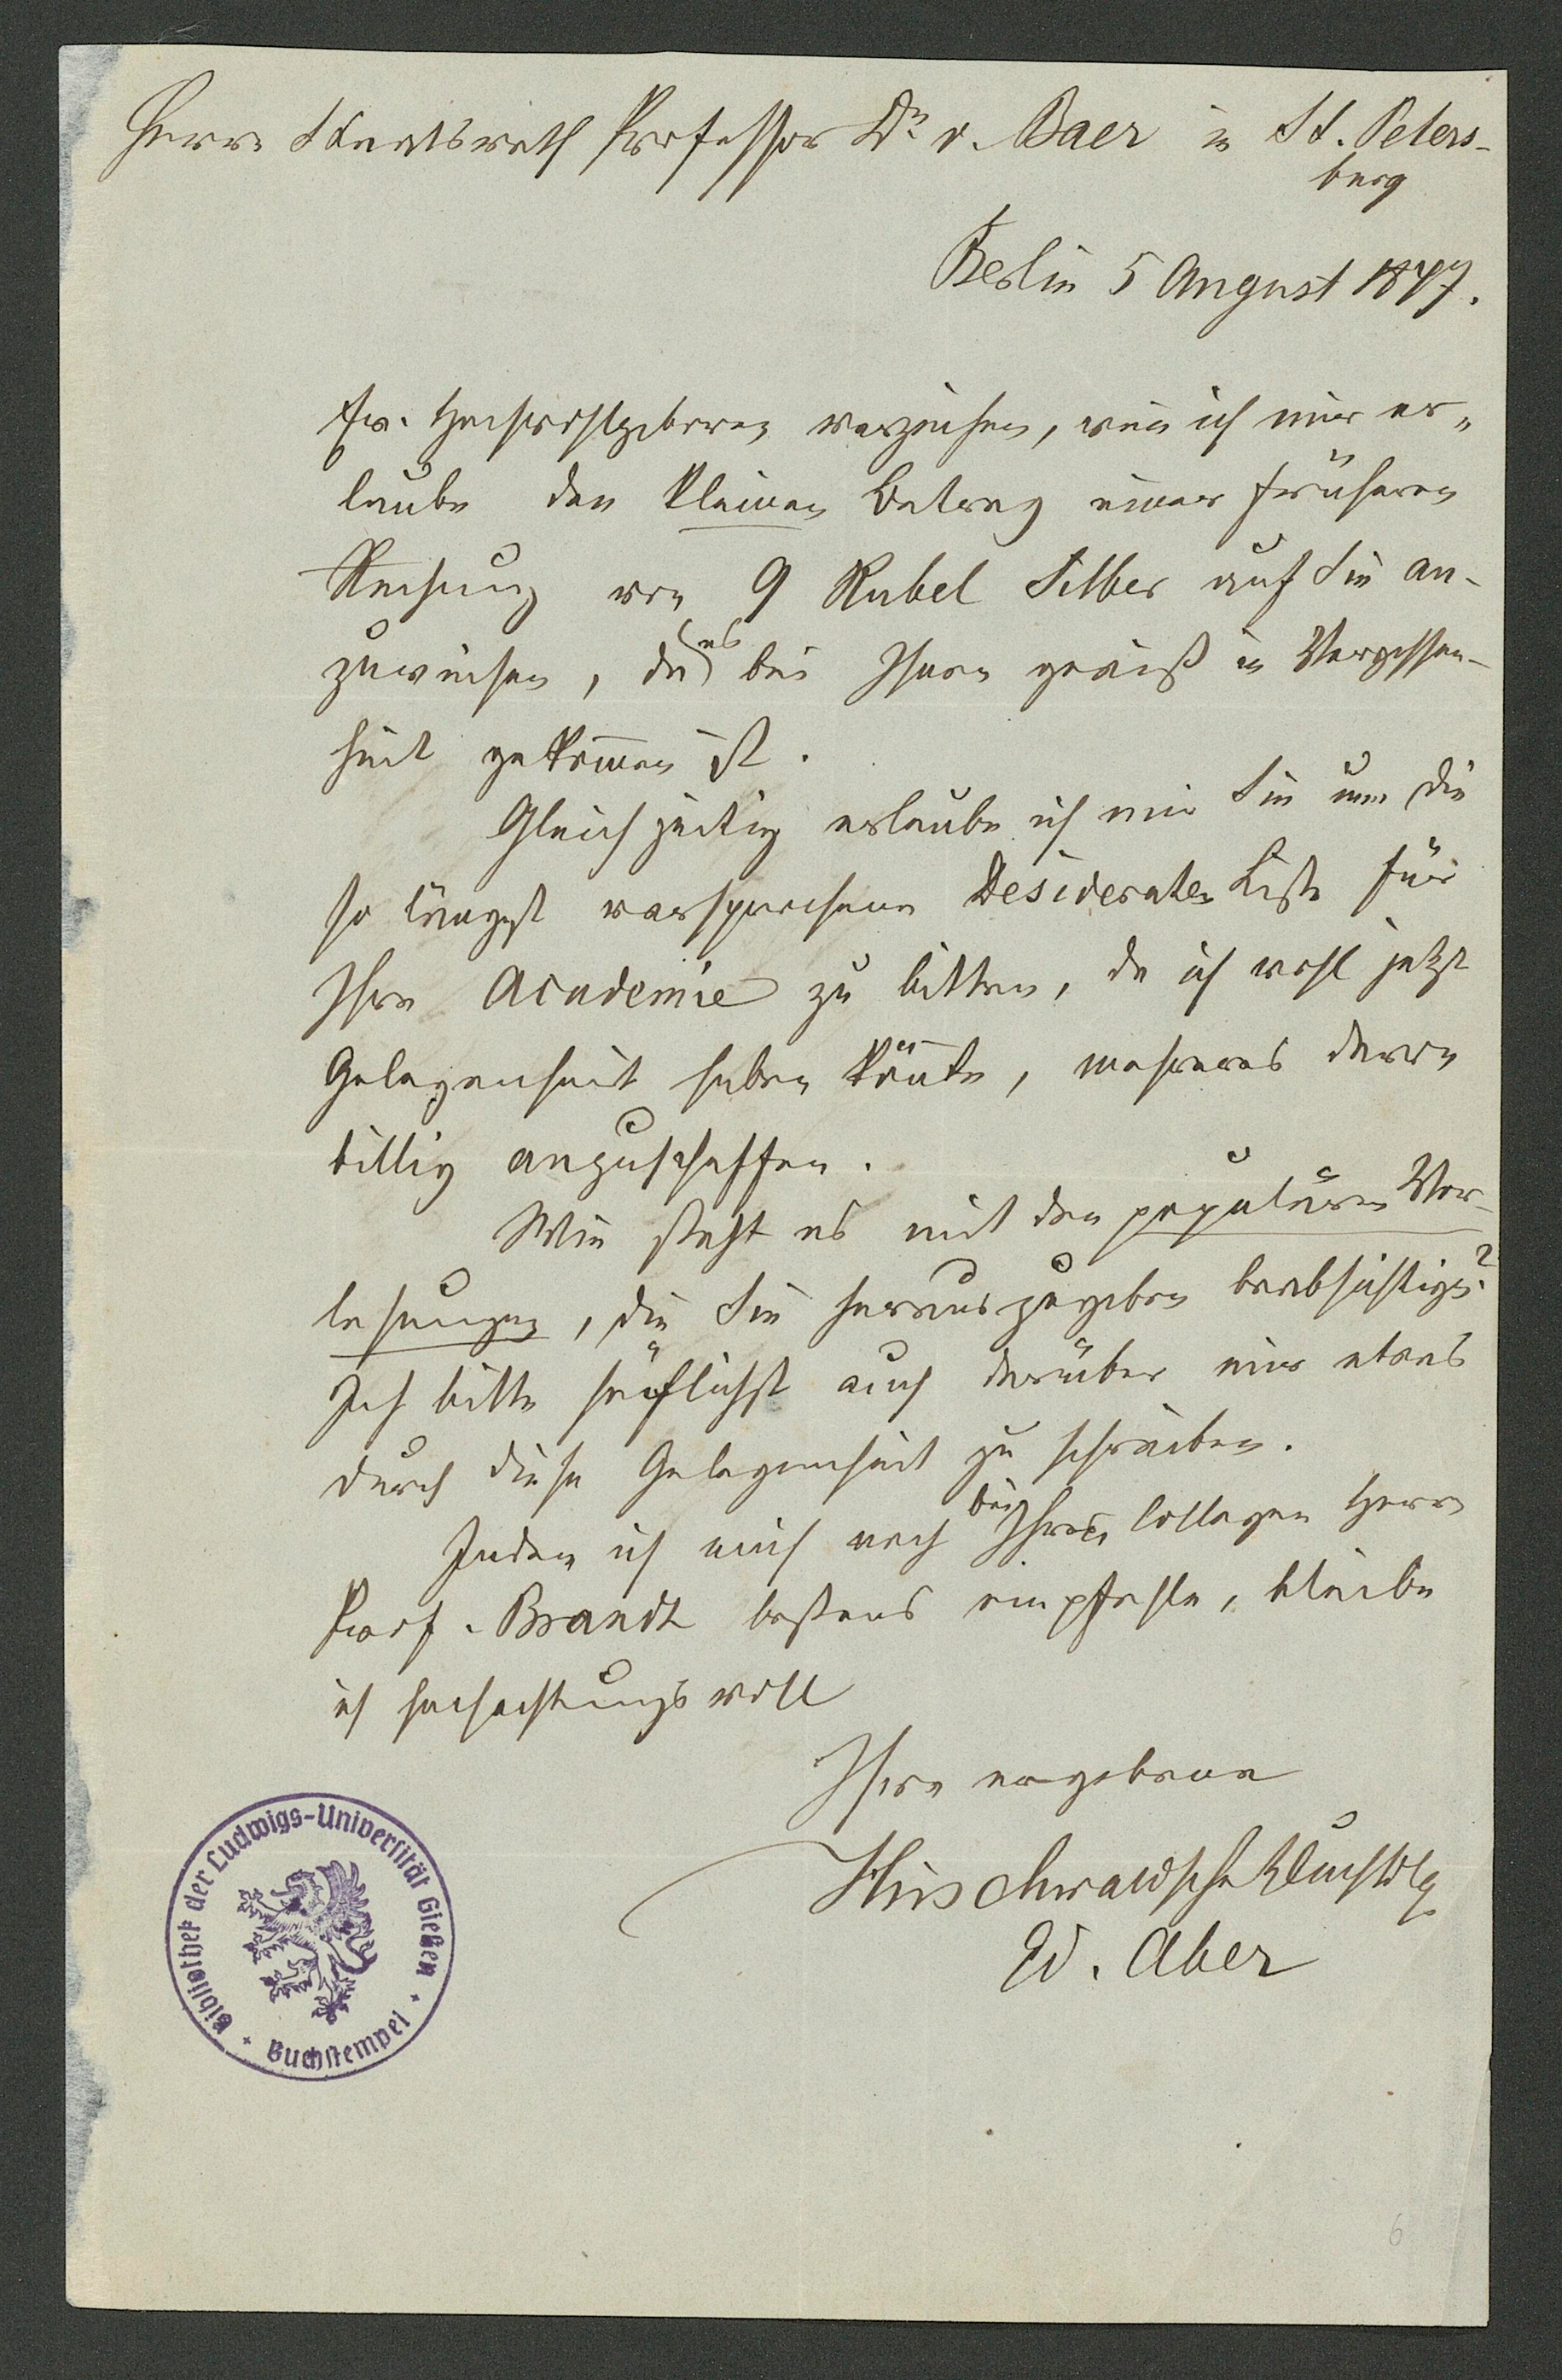 Herrn Staatsrath Professor Dr v. Baer in St. Peters-
burg
Berlin 5 August 1847.
Ew. Hochwohlgeboren verzeihen, wenn ich mir er-
laube den kleinen Betrag einer früheren
Rechnung von 9 Rubel Silber auf Sie an-
zuweisen, da es bei Ihnen gewiß in Vergessen-
heit gekom̅en ist.
Gleichzeitig erlaube ich mir Sie um die
so längst versprochene Desideraten Liste für
Ihre Academie zu bitten, da ich wohl jetzt
Gelegenheit haben kön̅te, mehreres davon
billig anzuschaffen.
Wie steht es mit den populären Vor-
lesungen, die Sie herauszugeben beabsichtigen?
Ich bitte höflichst auch darüber mir etwas
durch diese Gelegenheit zu schreiben.
Indem ich mich noch bei Ihrem Collegen Herrn
Prof. Brandt bestens empfehle, bleibe
ich hochachtungsvoll
Ihre ergebene
Hirschwaldsche Buchhdlg
Ed. Aber
Bibliothek der Ludwigs-Universität Gießen
Buchstempel
6